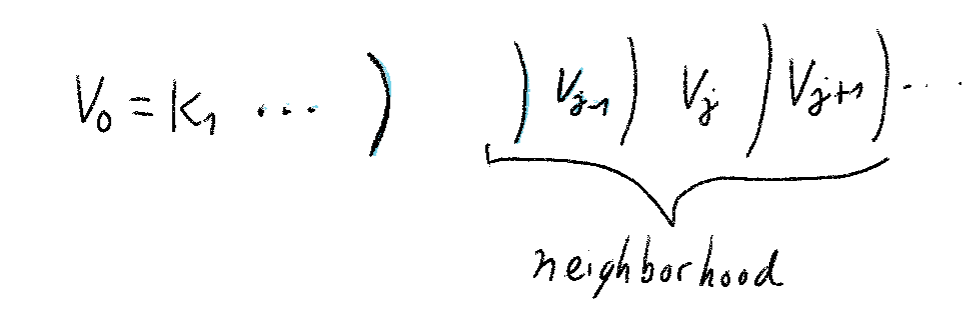 V₀ = K₁ ··· ) ) Vⱼ₋₁ ) Vⱼ ) Vⱼ₊₁ ) ···
neighborhood